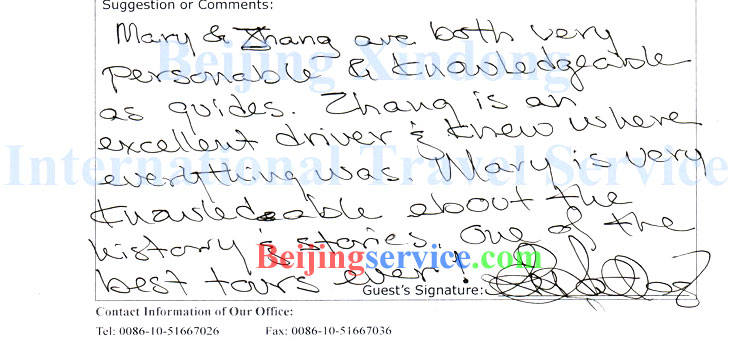 Suggestion or Comments:
Mary & Zhang are both very
Beijing Xindong
personable & knowledgeable
as guides. Zhang is an
excellent driver & knew where
International Travel Service
everything was. Mary is very
knowledeable about the
history & stories. One of the
Beijingservice.com
best tours ever!
Guest's Signature:
Contact Information of Our Office:
Tel: 0086-10-51667026 Fax: 0086-10-51667036